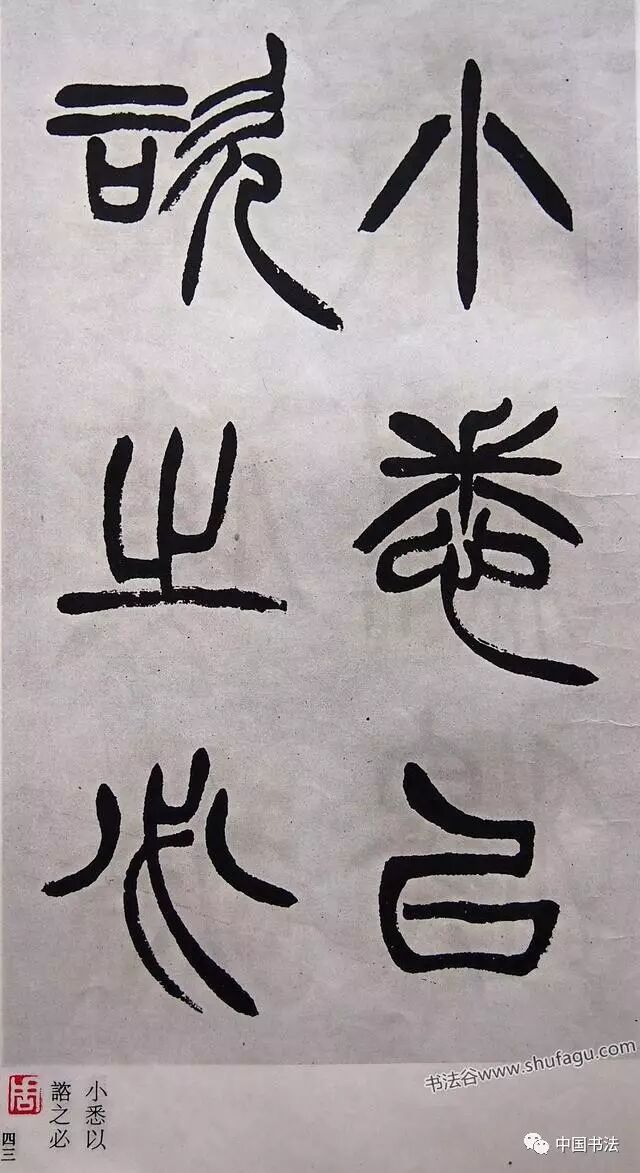 小悉以
諮之必
小悉以
諮之必
周
四三
书法谷www.shufagu.com
中国书法